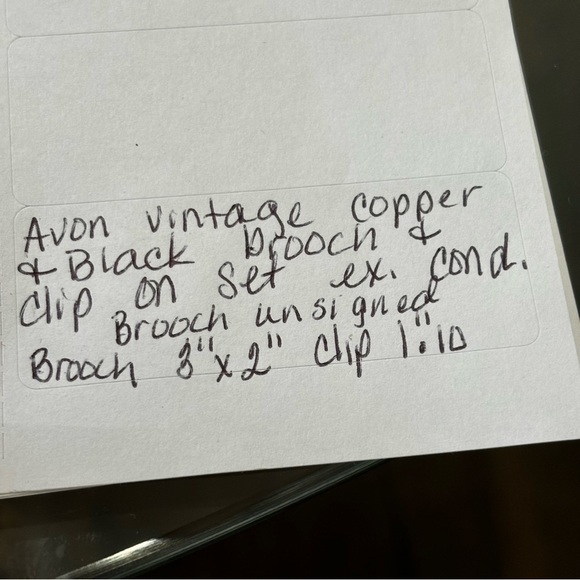 Avon vintage copper
& Black brooch &
clip on set ex. cond.
Brooch unsigned
Brooch 3"x2" clip 1".10